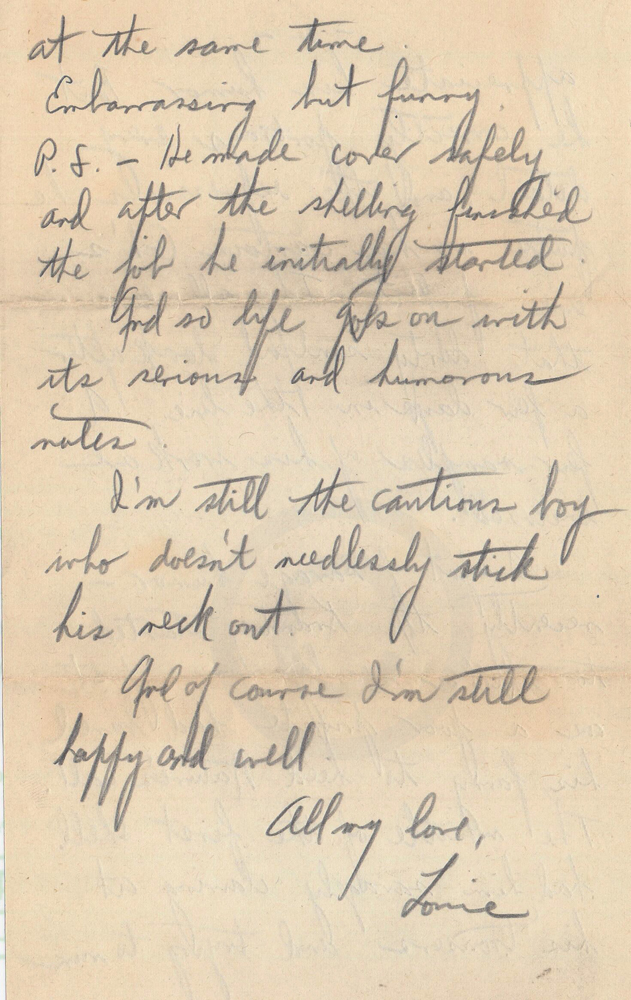 at the same time.
Embarrassing but funny.
P.S. – He made cover safely
and after the shelling finished
the job he initially started.
And so life goes on with
its serious and humorous
notes.
I'm still the cautious boy
who doesn't needlessly stick
his neck out.
And of course I'm still
happy and well.
All my love,
Louie